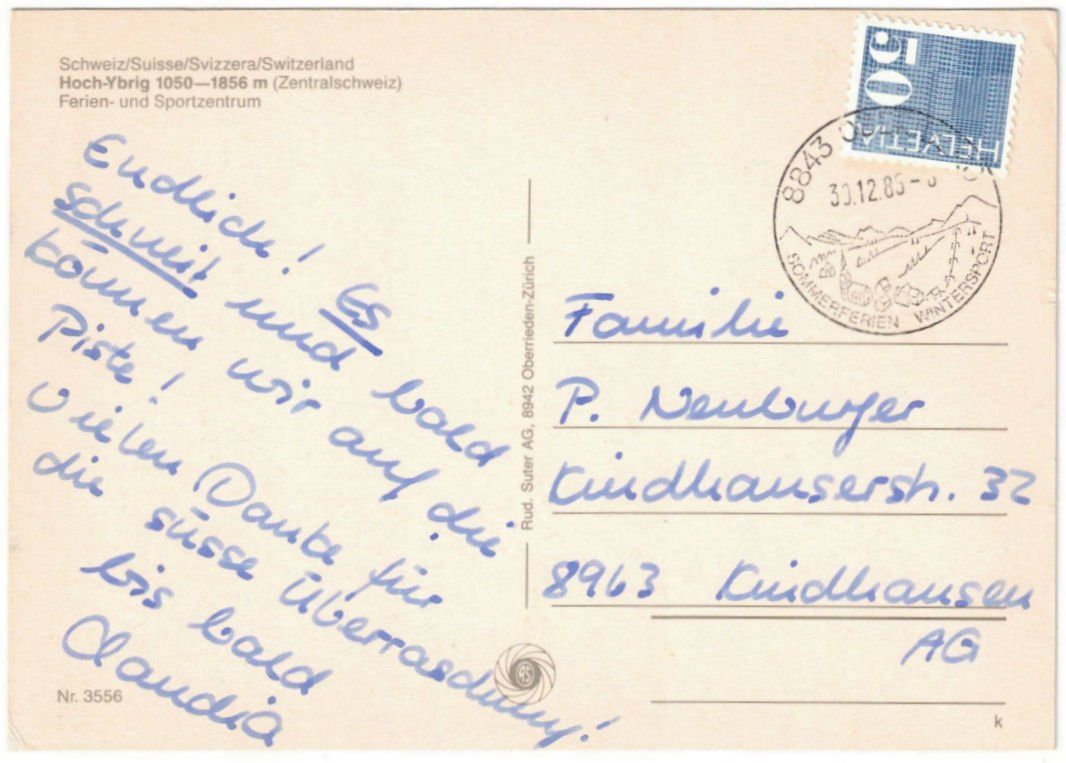 Schweiz/Suisse/Svizzera/Switzerland
Hoch-Ybrig 1050—1856 m (Zentralschweiz)
Ferien- und Sportzentrum
Endlich! Es
schneit und bald
können wir auf die
Piste!
Vielen Danke für
die süsse Überraschung!
bis bald
Claudia
Nr. 3556
Rud. Suter AG, 8942 Oberrieden-Zürich
50
HELVETIA
8843
30.12.86
SOMMERFERIEN WINTERSPORT
Familie
P. Neuburger
Kindhauserstr. 32
8963 Kindhausen
AG
k